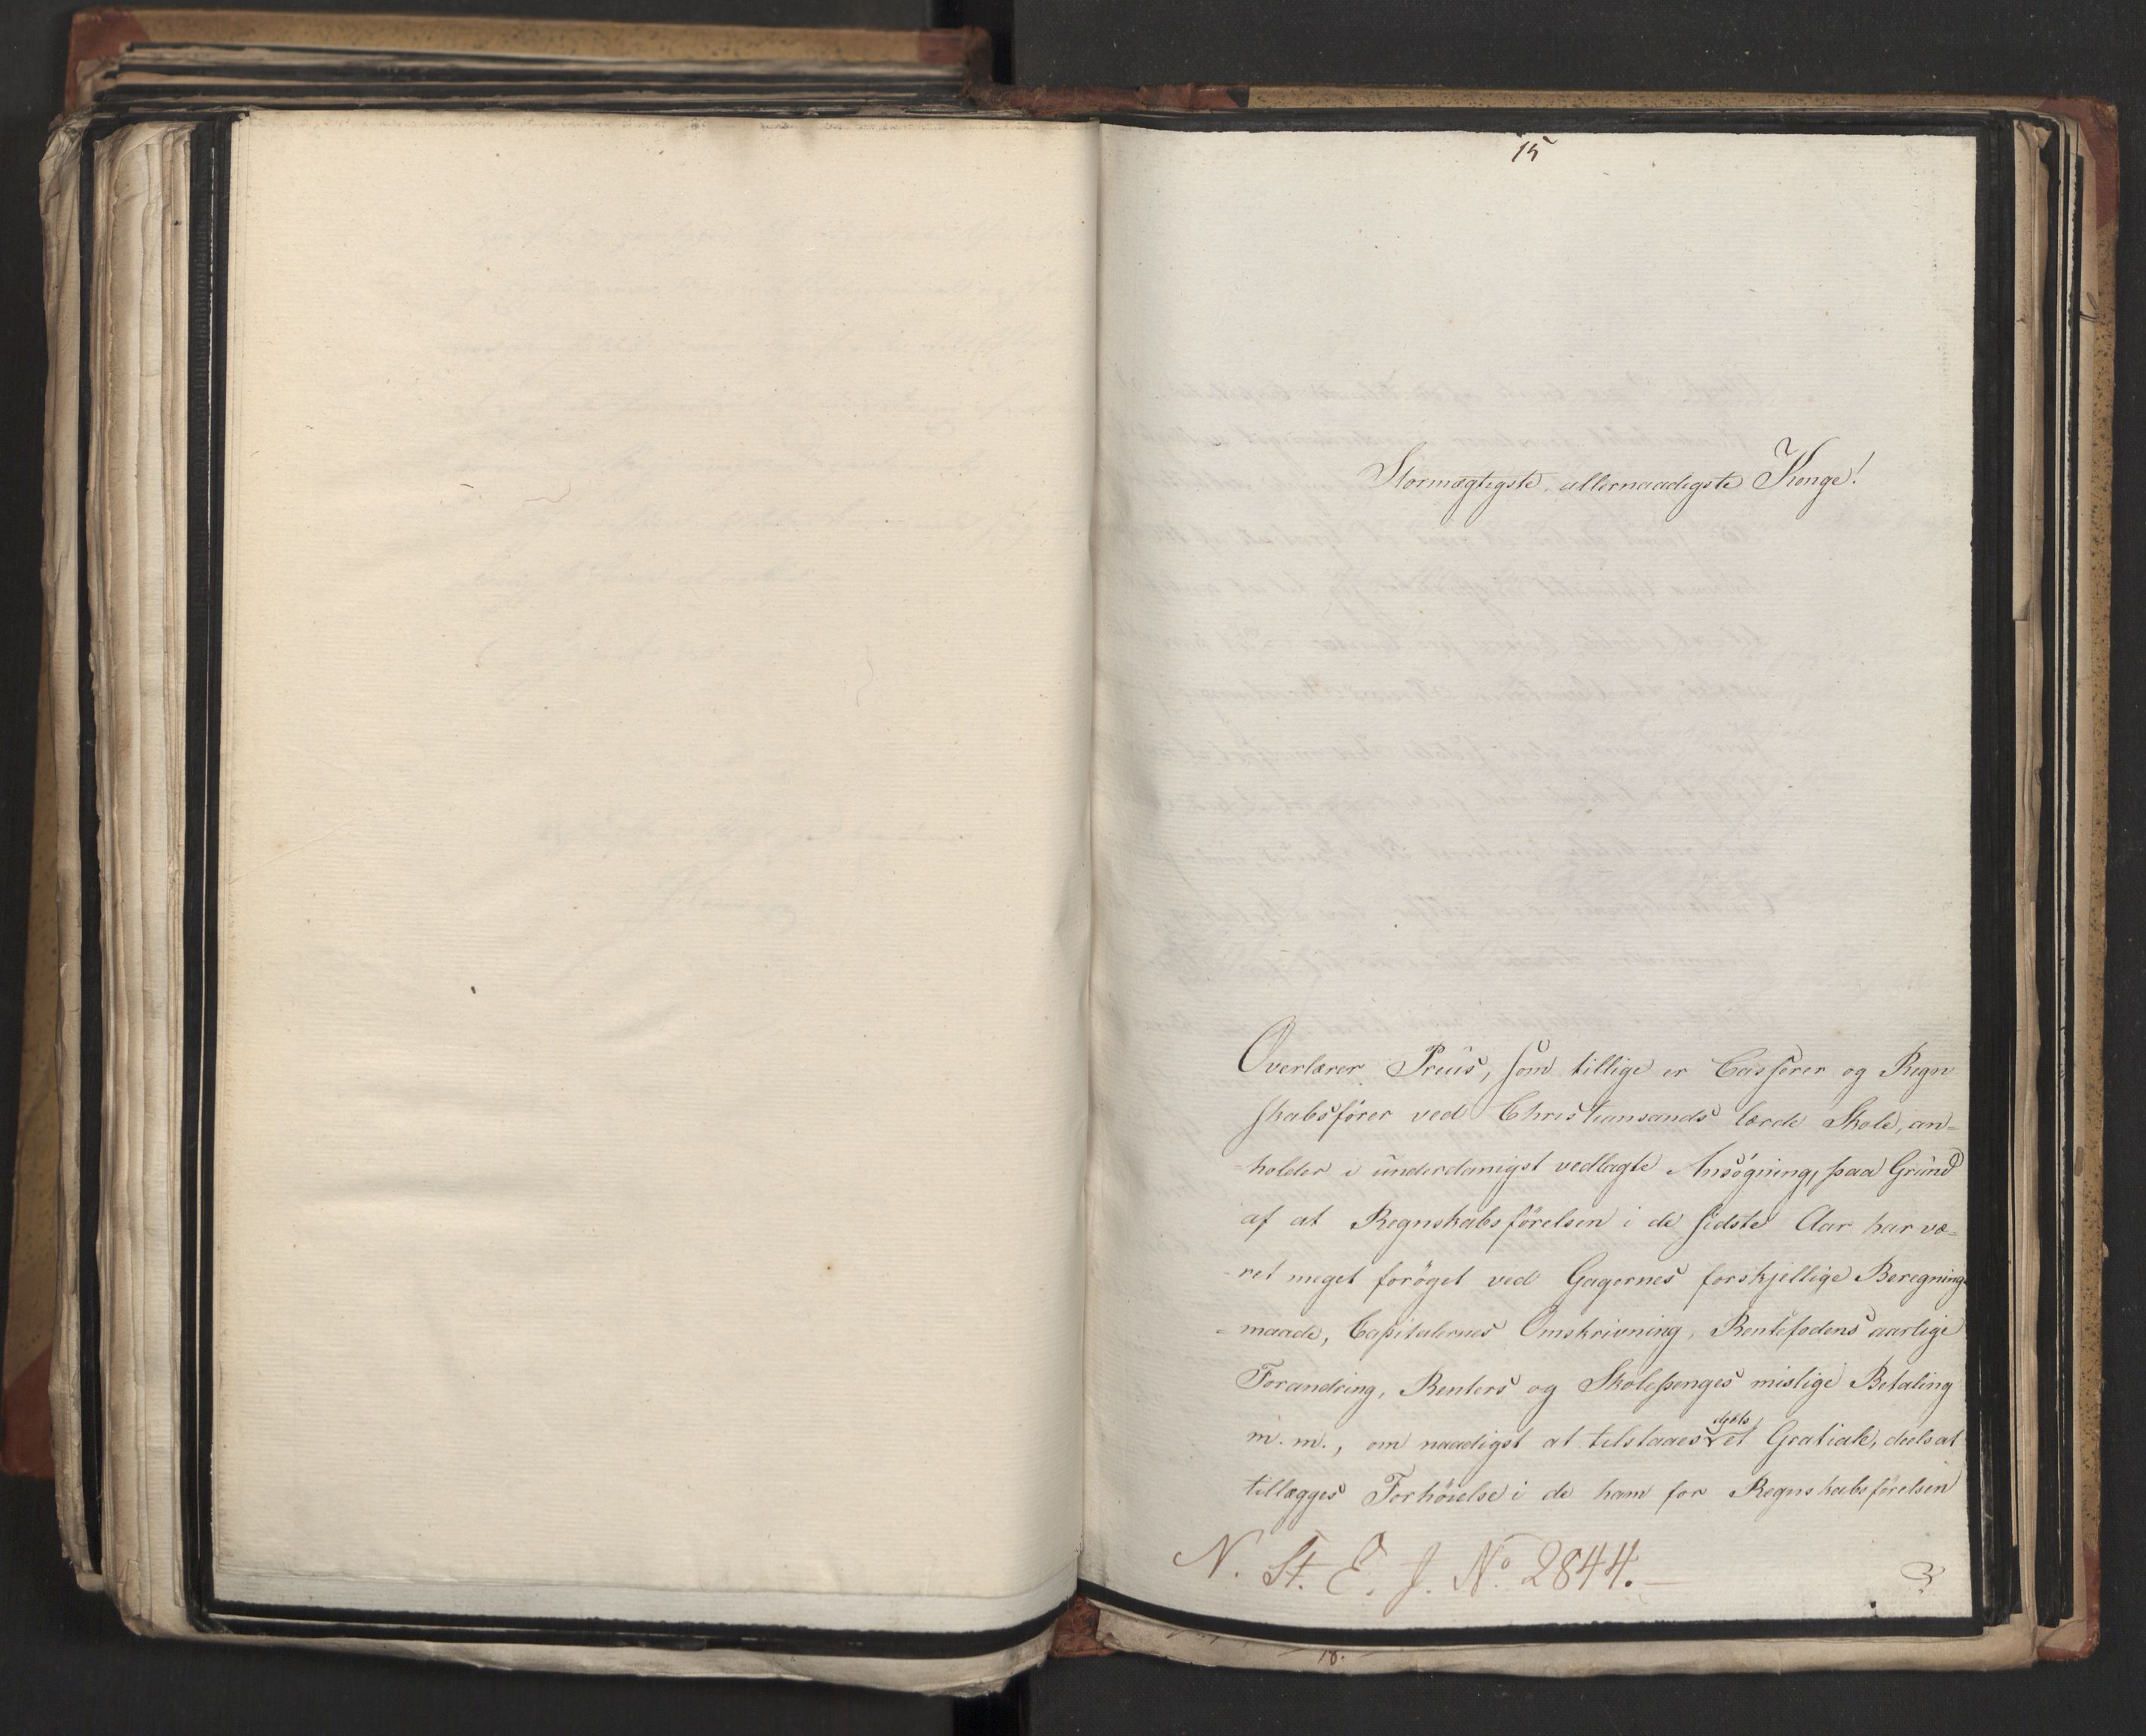 15
Stormægtigste, allernaadigste Konge!
Overlærer Preüs, som tillige er Casserer og Regn
skabsfører ved Christiansands lærde Skole, an=
=holder i ünderdanigst vedlagte Ansögning, paa Gründ
af at Regnskabsförelsen i de sidste Aar har væ=
-ret meget foröget ved Gagernes forskjellige Beregnings
=maade, Capitalernes Omskrivning, Rentefodens aarlige
Forandring, Renters og Skolepenges mislige Betaling
m. m., om naadigst at tilstaaes deels et Gratiale, deels at
tillægges Forhöielse i de ham for Regnskabsförelsen
N. St. E. J. No 2844.—
18.